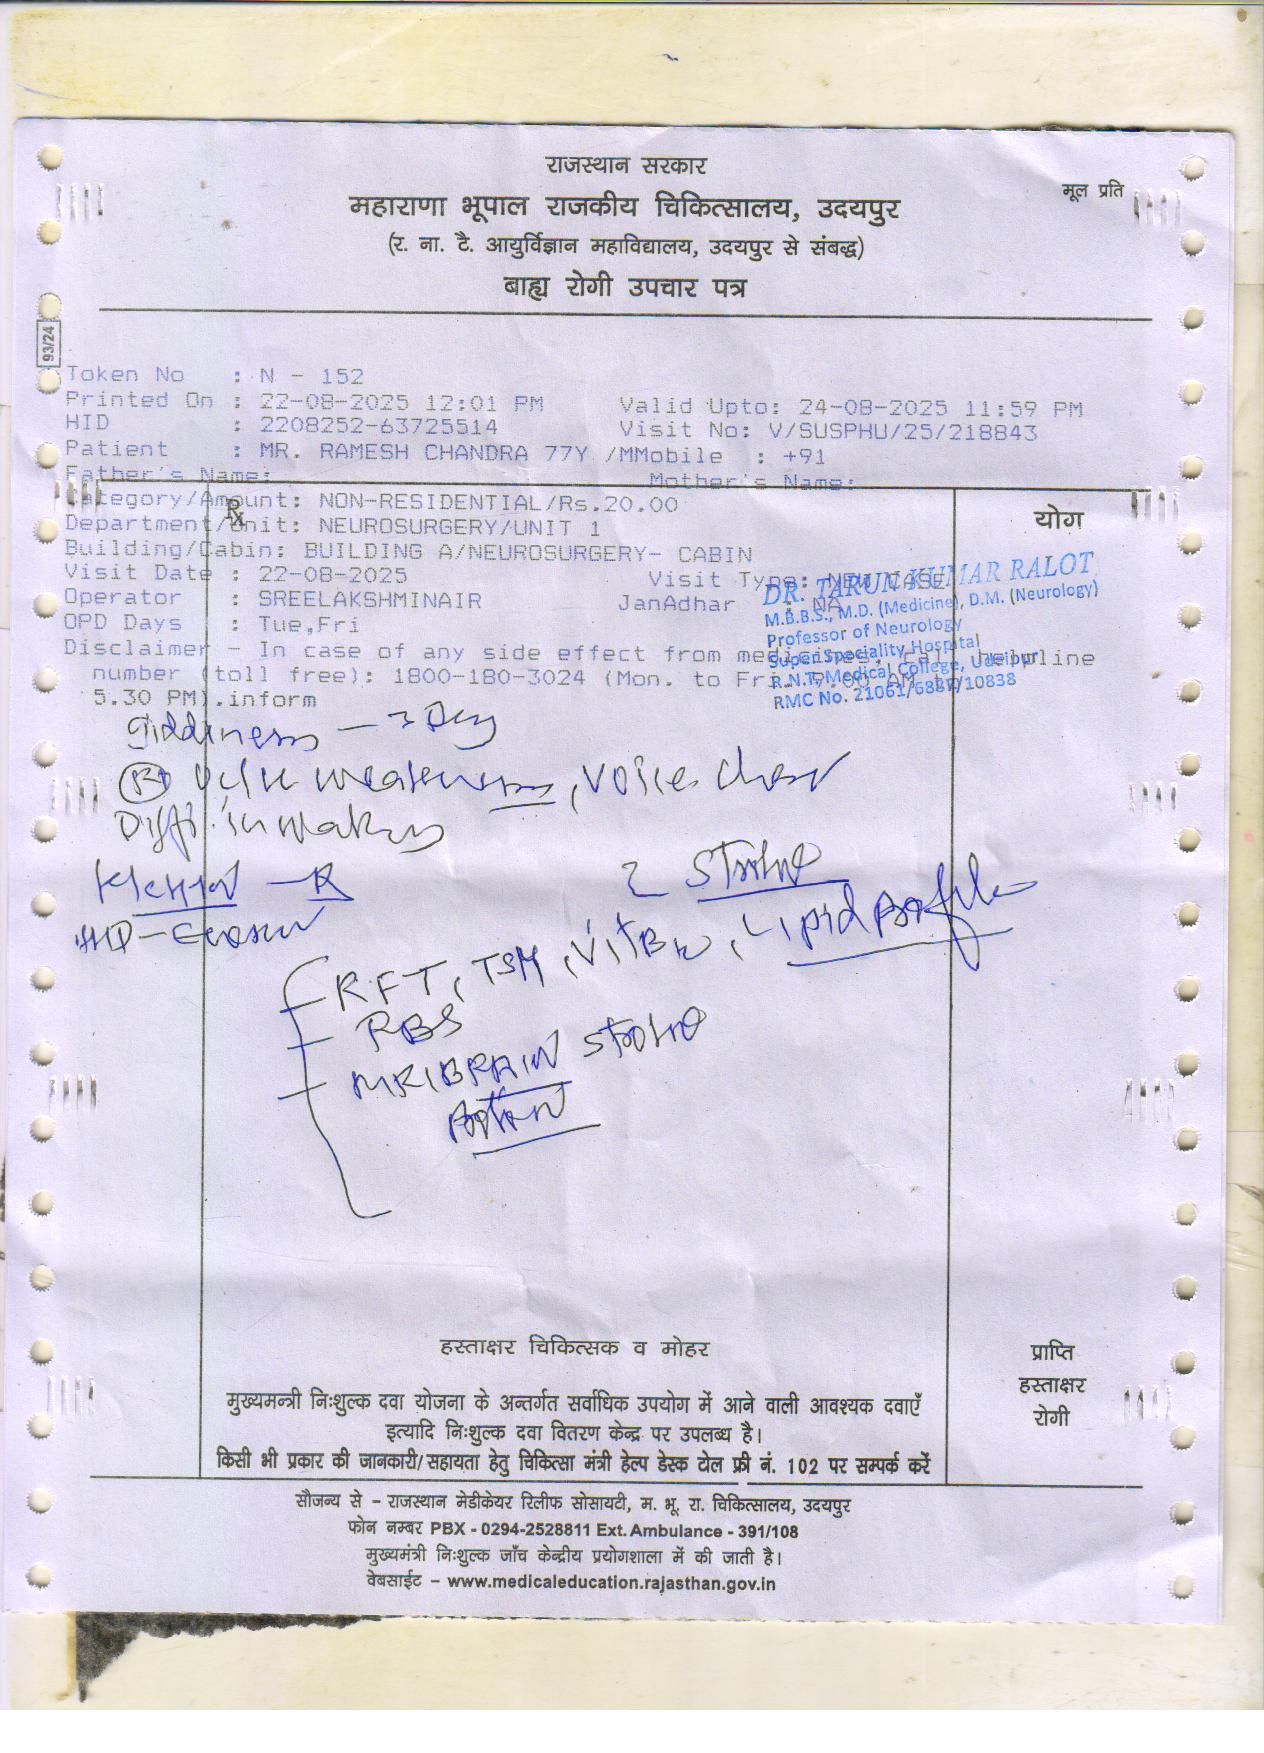 राजस्थान सरकार
मूल प्रति
महाराणा भूपाल राजकीय चिकित्सालय, उदयपुर
(र. ना. टै. आयुर्विज्ञान महाविद्यालय, उदयपुर से संबद्ध)
बाह्य रोगी उपचार पत्र
93/24
Token No : N - 152
Printed On : 22-08-2025 12:01 PM Valid Upto: 24-08-2025 11:59 PM
HID : 2208252-63725514 Visit No: V/SUSPHU/25/218843
Patient : MR. RAMESH CHANDRA 77Y /MMobile : +91
Father's Name: Mother's Name:
Category/Amount: NON-RESIDENTIAL/Rs.20.00
℞
योग
Department/Unit: NEUROSURGERY/UNIT 1
Building/Cabin: BUILDING A/NEUROSURGERY- CABIN
Visit Date : 22-08-2025 Visit Type: NEW CASE
Operator : SREELAKSHMINAIR JanAdhar : NA
OPD Days : Tue,Fri
Disclaimer - In case of any side effect from medicines, call helpline
number (toll free): 1800-180-3024 (Mon. to Fri. 9.00 AM to
5.30 PM).inform
DR. TARUN KUMAR RALOT
M.B.B.S., M.D. (Medicine), D.M. (Neurology)
Professor of Neurology
Super Speciality Hospital
R.N.T. Medical College, Udaipur
RMC No. 21061/6887/10838
giddiness
weakness, voice
Diff. in walking
Stroke
RFT, TSH, Vit B12, Lipid Profile
RBS
MRI BRAIN Stroke
हस्ताक्षर चिकित्सक व मोहर
प्राप्ति
हस्ताक्षर
रोगी
मुख्यमन्त्री निःशुल्क दवा योजना के अन्तर्गत सर्वाधिक उपयोग में आने वाली आवश्यक दवाएँ
इत्यादि निःशुल्क दवा वितरण केन्द्र पर उपलब्ध है।
किसी भी प्रकार की जानकारी/सहायता हेतु चिकित्सा मंत्री हेल्प डेस्क टोल फ्री नं. 102 पर सम्पर्क करें
सौजन्य से - राजस्थान मेडीकेयर रिलीफ सोसायटी, म. भू. रा. चिकित्सालय, उदयपुर
फोन नम्बर PBX - 0294-2528811 Ext. Ambulance - 391/108
मुख्यमंत्री निःशुल्क जाँच केन्द्रीय प्रयोगशाला में की जाती है।
वेबसाईट - www.medicaleducation.rajasthan.gov.in